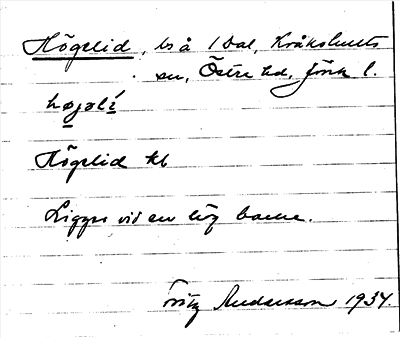 Högelid, ls å 1 Dal, Kråkshults
sn, Östra hd, Jönk l.
høgəlí
Högelid kb
Ligger vid en hög backe.
Fritz Andersson 1934.